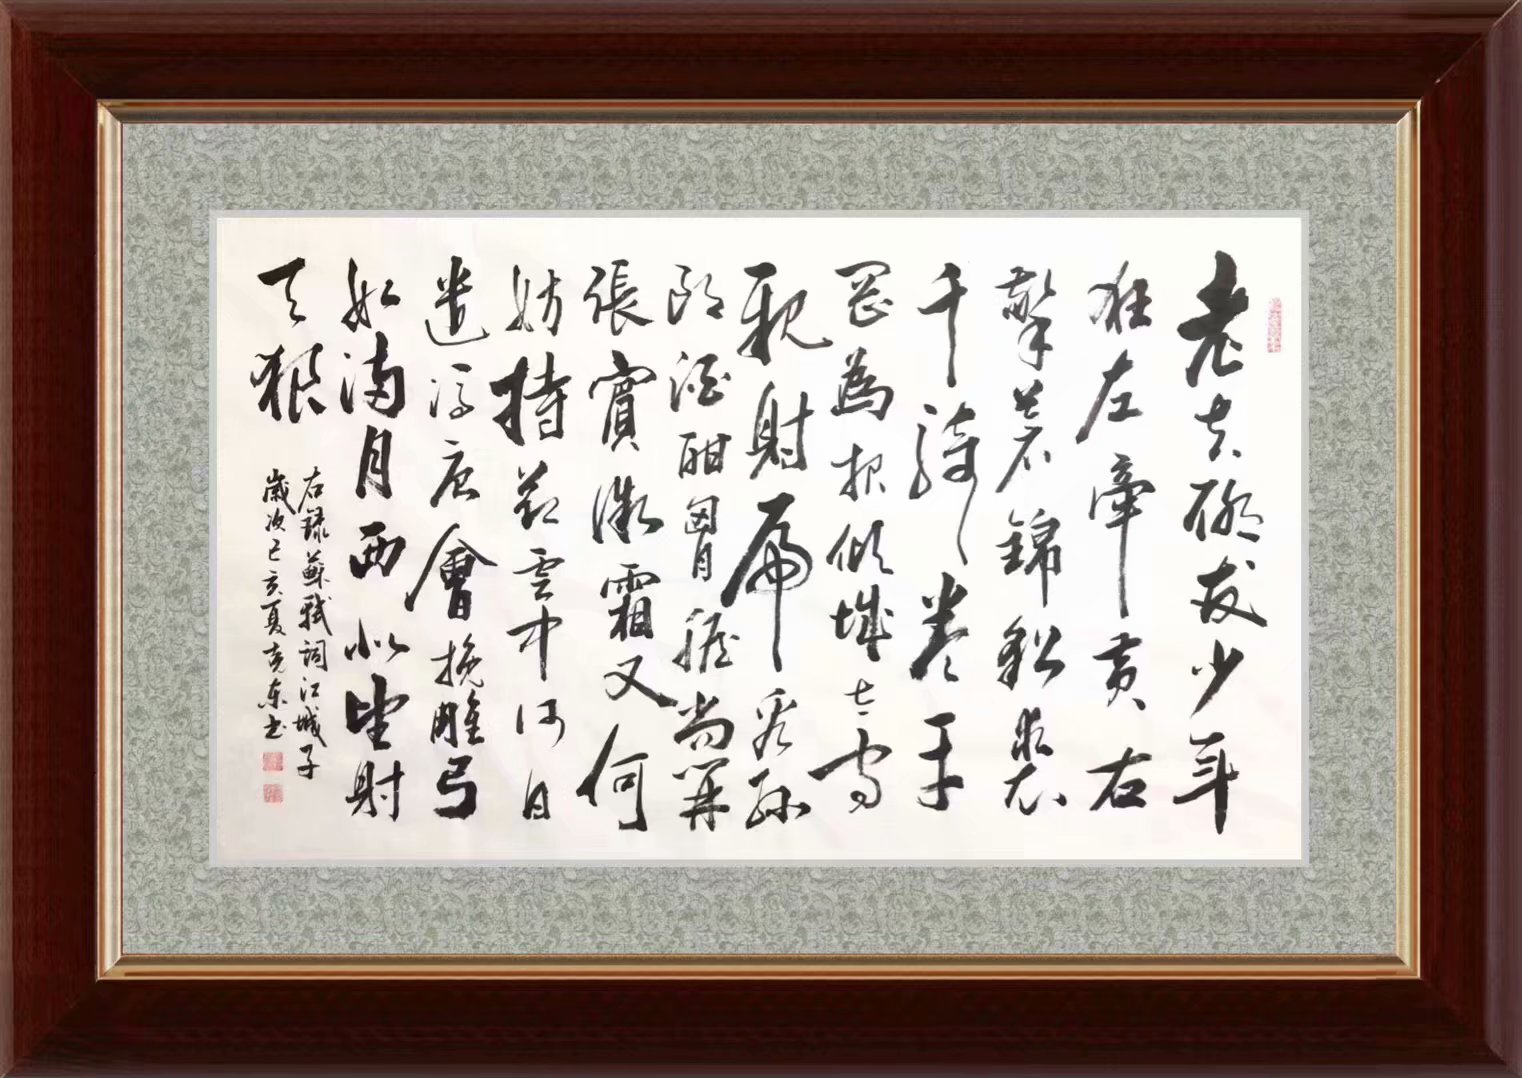 老夫聊發少年
狂左牽黃右
擎蒼錦貂裘
千騎卷平
岡為报傾城太守
親射虎看孫
郎酒酣胸膽尚開
張鬢微霜又何
妨持節雲中何日
遣馮唐會挽雕弓
如滿月西北望射
天狼
右録蘇軾詞江城子
歲次己亥夏克東书